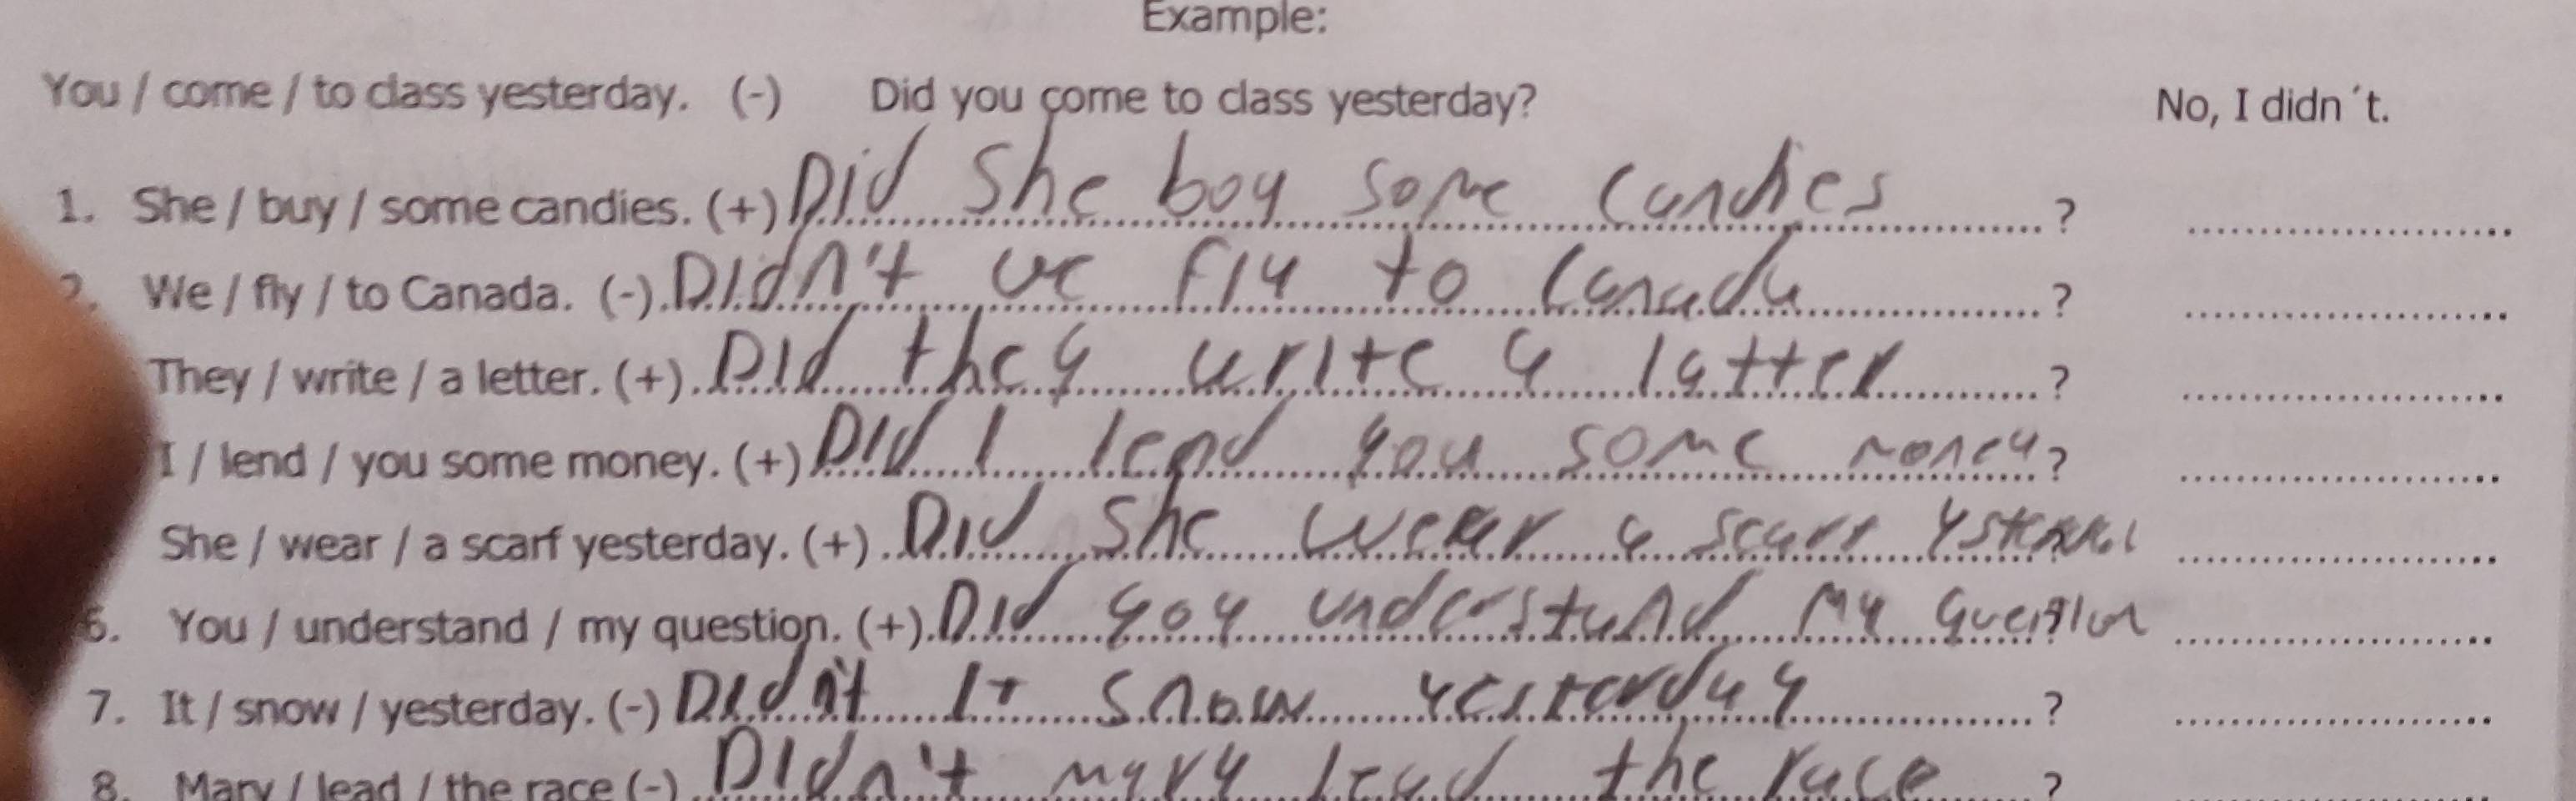 Example:
You / come / to class yesterday. (-) Did you come to class yesterday? No, I didn´t.
1. She / buy / some candies. (+) Did She boy some Candies ? ........................
2. We / fly / to Canada. (-) Didn't we fly to Canada ? ........................
They / write / a letter. (+) Did they write a latter ? ........................
I / lend / you some money. (+) Did I lend you some money ? ........................
She / wear / a scarf yesterday. (+) Did She wear a ........................
6. You / understand / my question. (+) Did you understand my ........................
7. It / snow / yesterday. (-) Didn't It snow yesterday ? ........................
8. Mary / lead / the race (-) Didn't mary lead the race ?